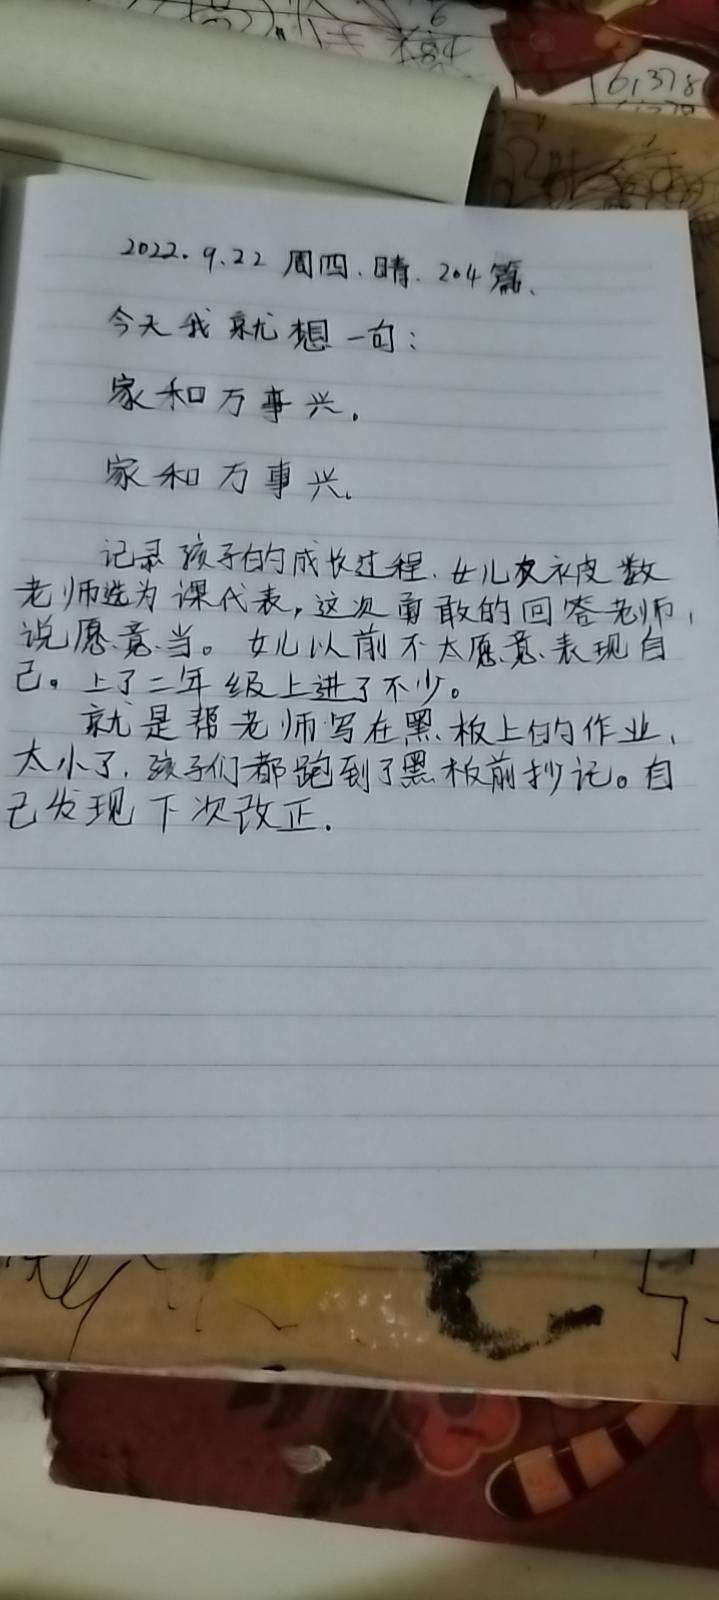 6
84
6,378
2022.9.22 周四、晴、204篇、
今天我就想一句：
家和万事兴。
家和万事兴。
记录孩子的成长过程、女儿友被数
老师选为课代表，这次勇敢的回答老师，
说愿意当。女儿以前不太愿意表现自
己。上了二年级上进了不少。
就是帮老师写在黑板上的作业、
太小了，孩子们都跑到了黑板前抄记。自
己发现下次改正.